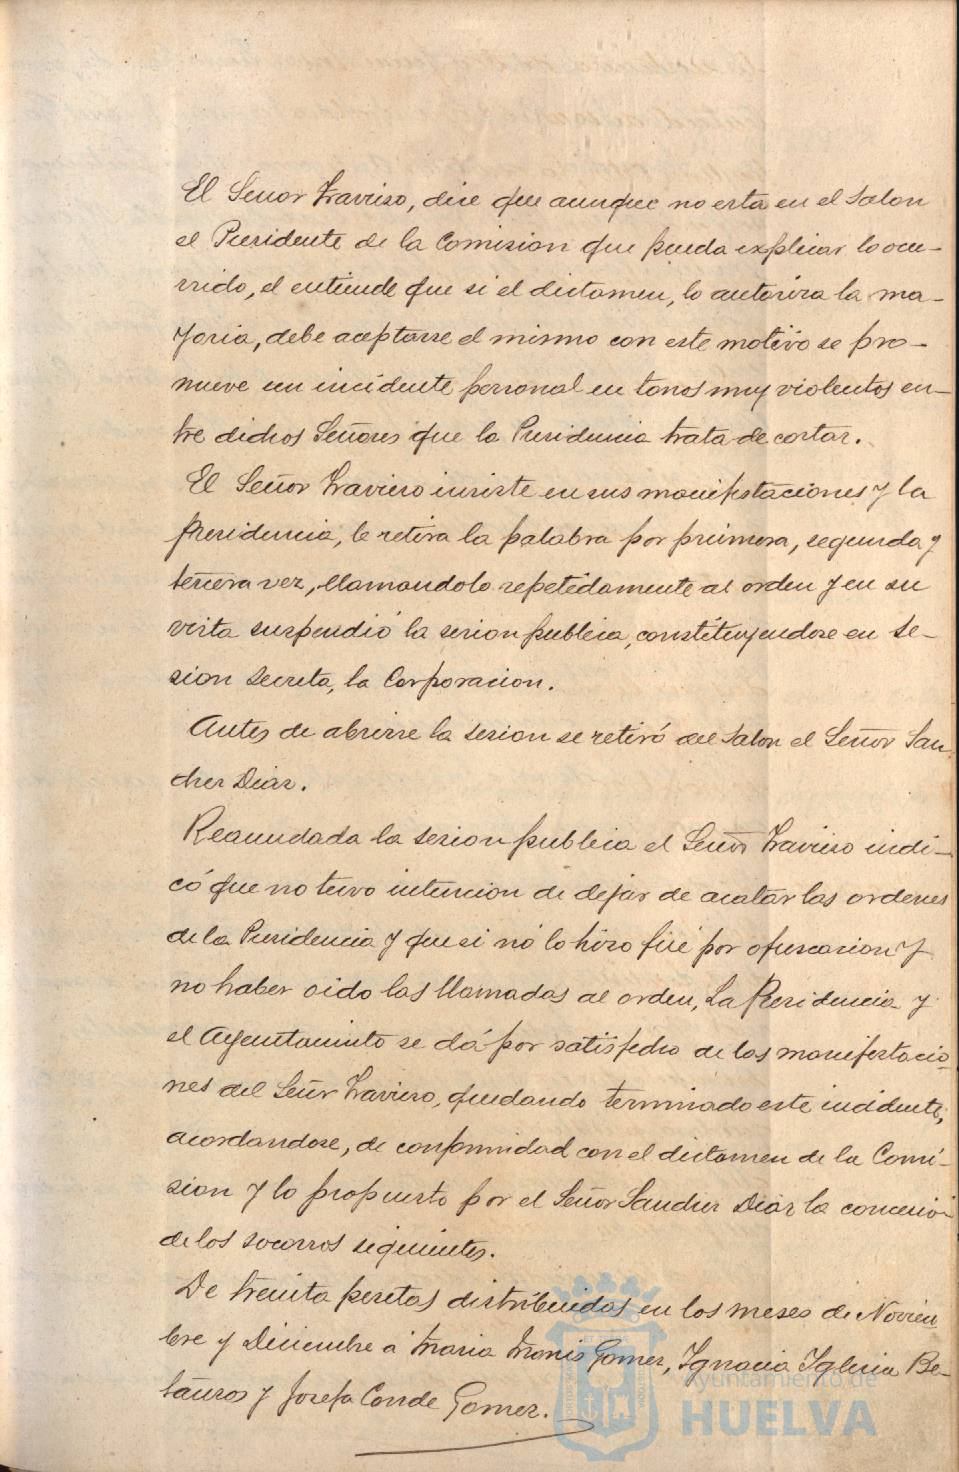 El Señor Travieso, dice que aunque no esta en el Salon
el Presidente de la Comision que pueda explicar lo ocu-
rrido, el entiende que si el dictamen, lo autoriza la ma-
yoria, debe aceptarse el mismo con este motivo se pro-
mueve un incidente personal en tonos muy violentos en-
tre dichos Señores que la Presidencia trata de cortar.
El Señor Travieso insiste en sus manifestaciones y la
Presidencia, le retira la palabra por primera, segunda y
tercera vez, llamandolo repetidamente al orden y en su
vista suspendió la sesion publica, constituyendose en se-
sion secreta, la Corporacion.
Antes de abrirse la sesion se retiró del Salon el Señor San
chez Diaz.
Reanudada la sesion publica el Señor Travieso indi-
có que no tuvo intencion de dejar de acatar las ordenes
de la Presidencia y que si nó lo hizo fué por ofuscacion y
no haber oido las llamadas al orden, La Presidencia y
el Ayuntamiento se dá por satisfecho de las manifestacio-
nes del Señor Travieso, quedando terminado este incidente,
acordandose, de conformidad con el dictamen de la Comi-
sion y lo propuesto por el Señor Sanchez Diaz la concesión
de los socorros siguientes.
De treinta pesetas distribuidas en los meses de Noviem
bre y Diciembre á Maria Gomez, Ignacia Iglesia Be-
y Josefa Conde Gomez.
Ayuntamiento de
HUELVA